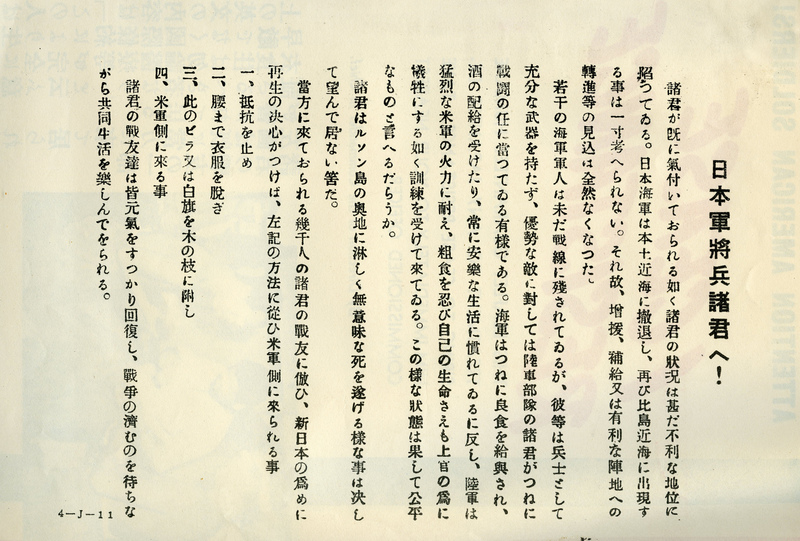 日本軍將兵諸君へ！
諸君が旣に氣付いておられる如く諸君の狀況は甚だ不利な地位に
陷つてゐる。日本海軍は本土近海に撤退し、再び比島近海に出現す
る事は一寸考へられない。それ故、增援、補給又は有利な陣地への
轉進等の見込は全然なくなつた。
若干の海軍軍人は未だ戰線に殘されてゐるが、彼等は兵士として
充分な武器を持たず、優勢な敵に對しては陸軍部隊の諸君がつねに
戰鬪の任に當つてゐる有樣である。海軍はつねに良食を給與され、
酒の配給を受けたり、常に安樂な生活に慣れてゐるに反し、陸軍は
猛烈な米軍の火力に耐え、粗食を忍び自己の生命さえも上官の爲に
犧牲にする如く訓練を受けて來てゐる。この樣な狀態は果して公平
なものと言へるだらうか。
諸君はルソン島の奧地に淋しく無意味な死を遂げる樣な事は決し
て望んで居ない筈だ。
當方に來ておられる幾千人の諸君の戰友に倣ひ、新日本の爲めに
再生の決心がつけば、左記の方法に從ひ米軍側に來られる事
一、抵抗を止め
二、腰まで衣服を脫ぎ
三、此のビラ又は白旗を木の枝に附し
四、米軍側に來る事
諸君の戰友達は皆元氣をすつかり回復し、戰爭の濟むのを待ちな
がら共同生活を樂しんでをられる。
4-J-11
ATTENTION AMERICAN SOLDIERS!